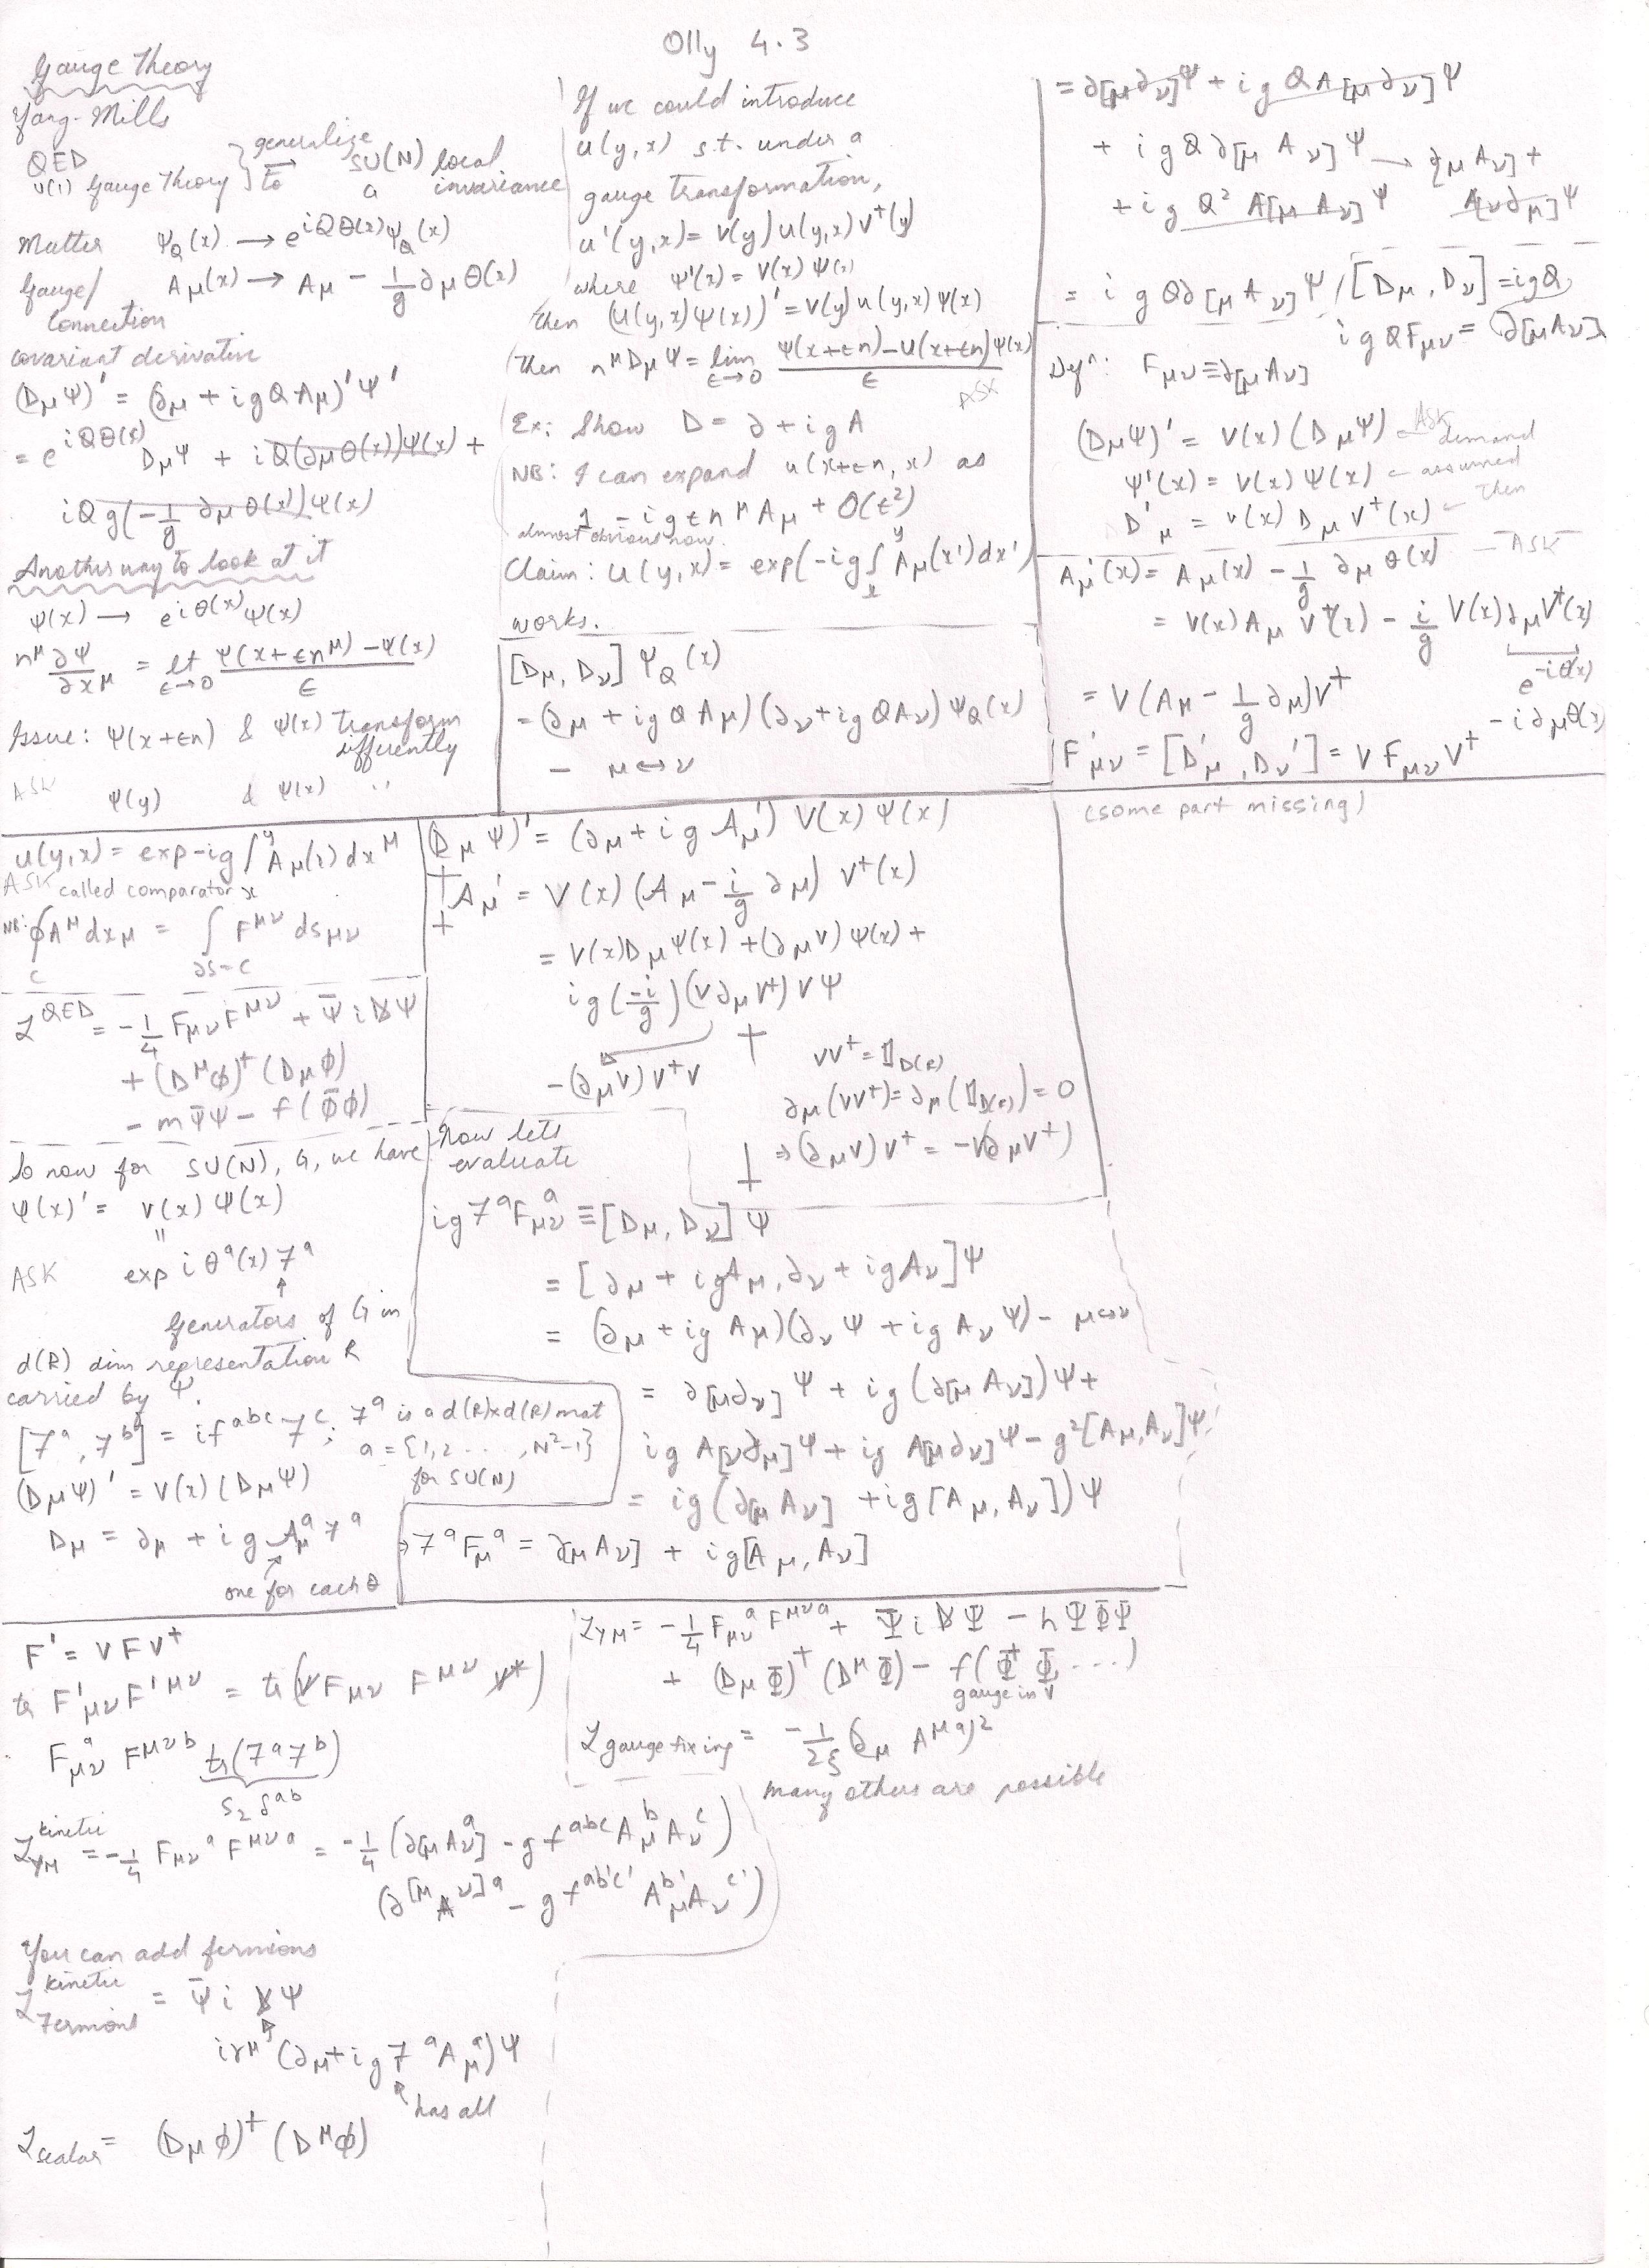 Olly 4.3
Gauge Theory
Yang-Mills
QED
U(1) Gauge Theory } generalize to SU(N) local invariance
G
Matter ψ_Q(x) → e^{iQθ(x)} ψ_Q(x)
Gauge/ A_μ(x) → A_μ - 1/g ∂_μ θ(x)
Connection
covariant derivative
(D_μ ψ)' = (∂_μ + i g Q A_μ)' ψ'
= e^{iQθ(x)} D_μ ψ + iQ(∂_μ θ(x))ψ(x) +
iQg(-1/g ∂_μ θ(x))ψ(x)
Another way to look at it
ψ(x) → e^{iθ(x)} ψ(x)
n^μ ∂ψ/∂x^μ = lt_{ε→0} (ψ(x+εn^μ) - ψ(x))/ε
Issue: ψ(x+εn) & ψ(x) transform
differently
ASK ψ(y) & ψ(x) ''
If we could introduce
u(y,x) s.t. under a
gauge transformation,
u'(y,x) = V(y)u(y,x)V†(y)
where ψ'(x) = V(x)ψ(x)
then (u(y,x)ψ(x))' = V(y)u(y,x)ψ(x)
Then n^μ D_μ ψ = lim_{ε→0} (ψ(x+εn) - U(x+εn)ψ(x))/ε
ASK
Ex: Show D = ∂ + igA
NB: I can expand u(x+εn, x) as
1 - igεn^μ A_μ + O(ε²)
almost obvious now.
Claim: u(y,x) = exp(-ig∫_x^y A_μ(x')dx')
works.
[D_μ, D_ν] ψ_Q(x)
= (∂_μ + igQA_μ)(∂_ν + igQA_ν) ψ_Q(x)
- μ↔ν
= ∂[μ∂ν]ψ + igQA[μ∂ν]ψ
+ igQ∂[μAν]ψ → ∂[μAν] +
+ igQ²A[μAν]ψ A[ν∂μ]ψ
= igQ∂[μAν]ψ / [D_μ, D_ν] = igQ
∂[μAν]
igQF_μν =
Defⁿ: F_μν ≡ ∂[μAν]
(D_μψ)' = V(x)(D_μψ) ← ASK demand
ψ'(x) = V(x)ψ(x) ← assumed
D'_μ = V(x)D_μV†(x) ← then
A_μ'(x) = A_μ(x) - 1/g ∂_μθ(x) — ASK
= V(x)A_μV†(x) - i/g V(x)∂_μV†(x)
e^{-iθ(x)}
= V(A_μ - 1/g ∂_μ)V†
-i∂_μθ(x)
F'_μν = [D_μ', D_ν'] = VF_μνV†
u(y,x) = exp -ig∫_x^y A_μ(x)dx^μ
ASK called comparator
NB: ∮_C A^μ dx_μ = ∫_{∂S=C} F^{μν} ds_μν
ℒ^QED = -1/4 F_μνF^{μν} + ψ̄iD̸ψ
+ (D^μφ)†(D_μφ)
- mψ̄ψ - f(φ̄φ)
So now for SU(N), G, we have
ψ(x)' = V(x)ψ(x)
"
ASK exp iθ^a(x)T^a
↑
Generators of G in
d(R) dim representation R
carried by ψ.
[T^a, T^b] = if^{abc}T^c; T^a is a d(R)×d(R) mat
a = {1,2 ...., N²-1}
for SU(N)
(D_μψ)' = V(x)(D_μψ)
D_μ = ∂_μ + igA_μ^aT^a
one for each θ
(D_μψ)' = (∂_μ + igA_μ')V(x)ψ(x)
A_μ' = V(x)(A_μ - i/g ∂_μ)V†(x)
= V(x)D_μψ(x) + (∂_μV)ψ(x) +
ig(-i/g)(V∂_μV†)Vψ
-(∂_μV)V†V
VV† = 𝟙_D(R)
∂_μ(VV†) = ∂_μ(𝟙_D(R)) = 0
⇒ (∂_μV)V† = -V(∂_μV†)
Now lets
evaluate
igT^aF_μν^a ≡ [D_μ, D_ν]ψ
= [∂_μ + igA_μ, ∂_ν + igA_ν]ψ
= (∂_μ + igA_μ)(∂_νψ + igA_νψ) - μ↔ν
= ∂[μ∂ν]ψ + ig(∂[μAν])ψ +
igA[ν∂μ]ψ + igA[μ∂ν]ψ - g²[A_μ, A_ν]ψ
= ig(∂[μAν] + ig[A_μ, A_ν])ψ
⇒ T^aF_μ^a = ∂[μAν] + ig[A_μ, A_ν]
(some part missing)
F' = VFV†
tr F'_μνF'^{μν} = tr(VF_μν F^{μν}V*)
F_μν^a F^{μνb} tr(T^aT^b)
S₂δ^{ab}
ℒ_YM^kinetic = -1/4 F_μν^aF^{μνa} = -1/4 (∂[μAν]^a - gf^{abc}A_μ^bA_ν^c)
(∂^[μA^ν]a - gf^{ab'c'}A_μ^{b'}A_ν^{c'})
You can add fermions
ℒ_Fermions^kinetic = ψ̄iD̸ψ
iγ^μ(∂_μ + igT^aA_μ^a)ψ
has all
ℒ_scalar = (D_μφ)†(D^μφ)
ℒ_YM = -1/4 F_μν^aF^{μνa} + Ψ̄iD̸Ψ - hΨΦ̄Ψ
+ (D_μΦ)†(D^μΦ) - f(Φ†Φ, ...)
gauge inv
ℒ_gauge fixing = -1/2ξ (∂_μA^{μa})²
many others are possible